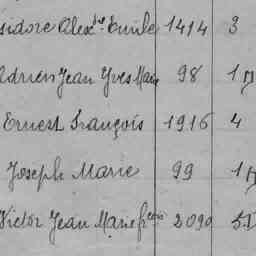 sidore Alexdre Emile 1414 3
Adrien Jean Yves Marie 98 1
Ernest François 1916 4
Joseph Marie 99 1
Victor Jean Marie fcois 2090 5